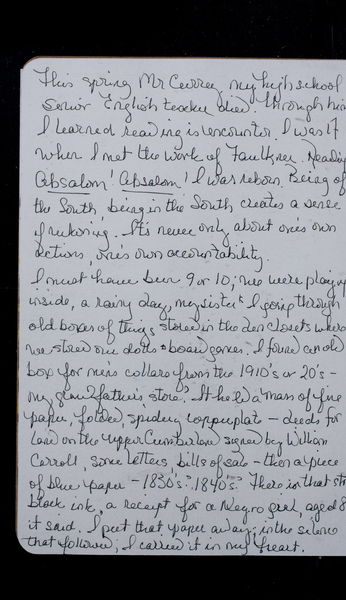 This spring Mr Currey, my high school
senior English teacher died. Through him
I learned reading is encounter. I was 17
when I met the work of Faulkner. Reading
Absalom! Absalom! I was reborn. Being of
the South, being in the South creates a sense
of reckoning. It's never only about one's own
actions, one's own accountability.
I must have been 9 or 10; we were playing
inside, a rainy day, my sister & I going through
old boxes of things stored in the den closets where
we stored our dolls & board games. I found an old
box for men's collars from the 1910's or 20's –
my grandfather's store? It held a mass of fine
paper, folded, spidery copperplate – deeds for
land on the upper Cumberland signed by William
Carroll, some letters, bills of sale – then a piece
of blue paper – 1830's? 1840's? There in that
black ink, a receipt for a Negro girl, aged 8
it said. I put that paper away; in the silence
that followed, I carried it in my heart.